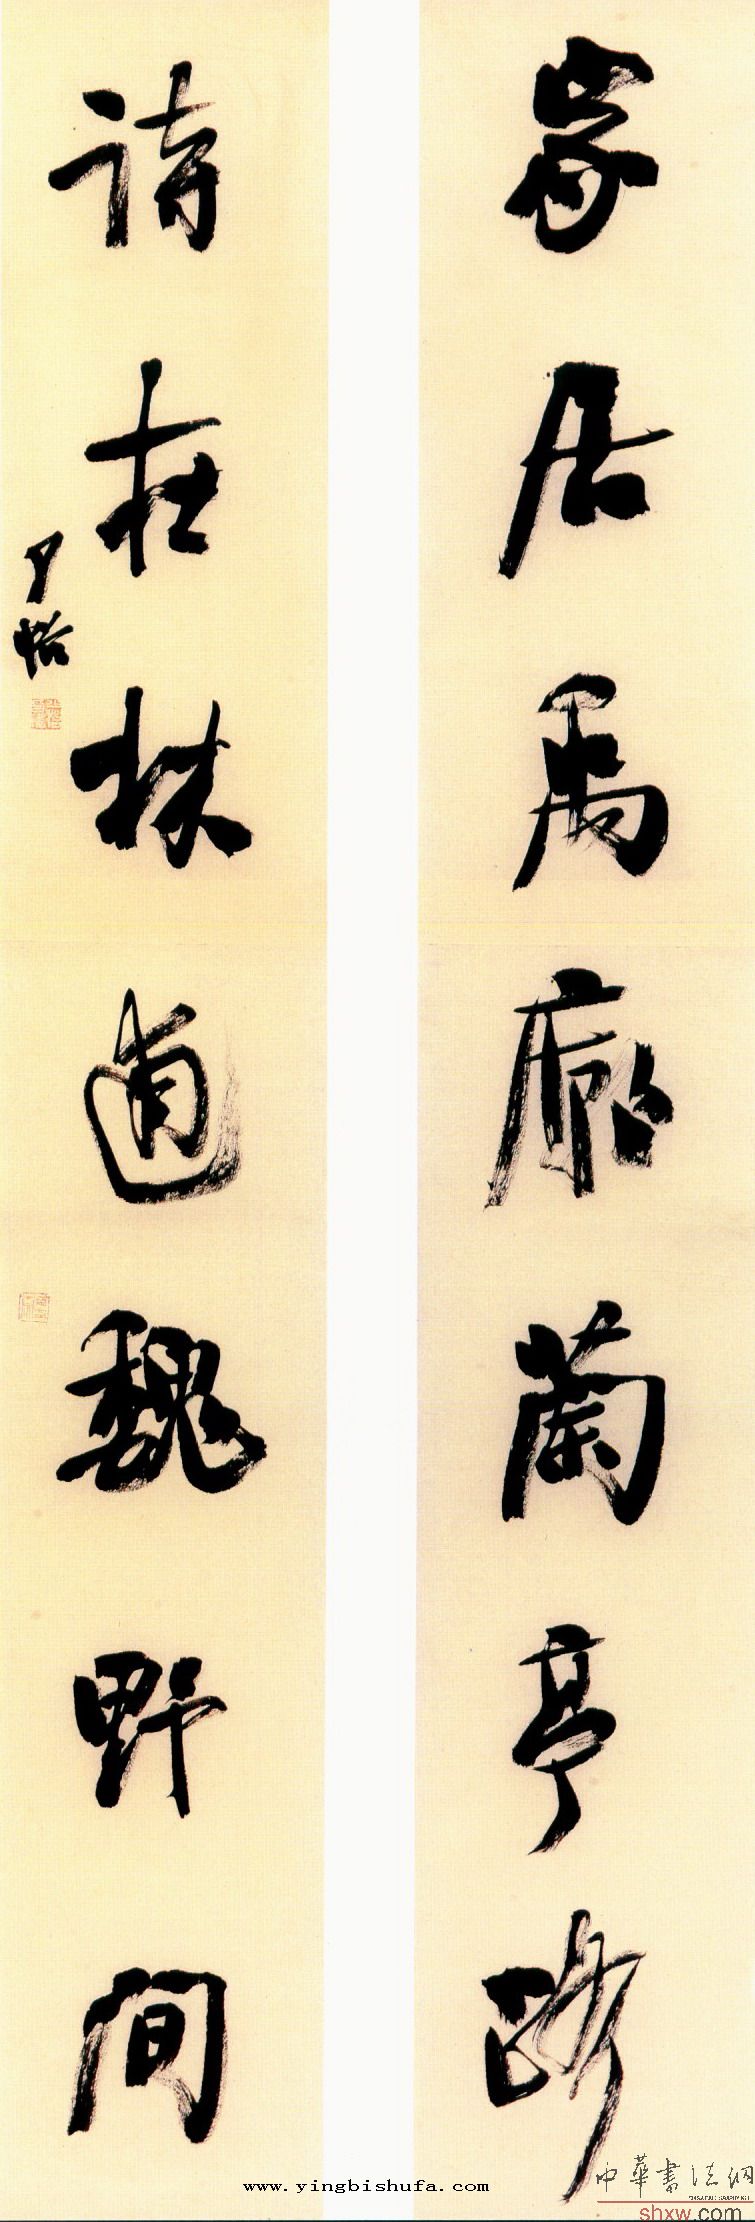 家居禹廟蘭亭路
詩在林逋魏野間
www.yingbishufa.com
中華書法網
shxw.com